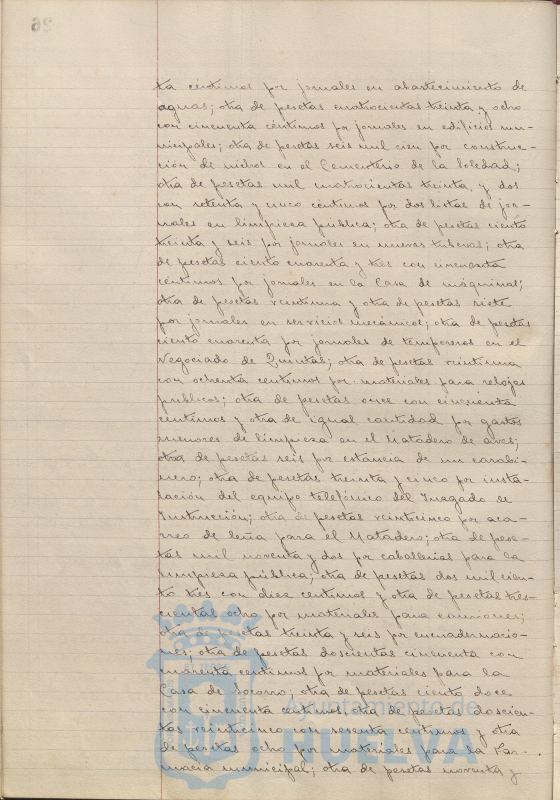 ta céntimos por jornales en abastecimiento de
aguas; otra de pesetas cuatrocientas treinta y ocho
con cincuenta céntimos por jornales en edificios mu-
nicipales; otra de pesetas seis mil cien por construc-
ción de nichos en el Cementerio de la Soledad;
otra de pesetas mil cuatrocientas treinta y dos
con setenta y cinco céntimos por dos listas de jor-
nales en limpieza pública; otra de pesetas ciento
treinta y seis por jornales en nuevas tuberas; otra
de pesetas ciento cuarenta y tres con cincuenta
céntimos por jornales en la Casa de máquinas;
otra de pesetas veintiuna y otra de pesetas siete
por jornales en servicios mecánicos; otra de pesetas
ciento cuarenta por jornales de temporeros en el
Negociado de Quintas; otra de pesetas veintiuna
con ochenta centimos por materiales para relojes
públicos; otra de pesetas once con cincuenta
centimos y otra de igual cantidad por gastos
menores de limpieza en el Matadero de aves;
otra de pesetas seis por estancia de un carabi-
nero; otra de pesetas treinta y cinco por insta-
lación del equipo telefónico del Juzgado de
Instrucción; otra de pesetas veinticinco por aca-
rreo de leña para el Matadero; otra de pese-
tas mil noventa y dos por caballerias para la
limpieza pública; otra de pesetas dos mil cien-
to tres con diez centimos y otra de pesetas tres-
cientas ocho por materiales para camiones;
otra de pesetas treinta y seis por encuadernacio-
nes; otra de pesetas doscientas cincuenta con
cuarenta centimos por materiales para la
Casa de Socorro; otra de pesetas ciento doce
con cincuenta centimos, otra de pesetas doscien-
tas veinticinco con sesenta centimos y otra
de pesetas ocho por materiales para la Far-
macia municipal; otra de pesetas noventa y
Ayuntamiento de
HUELVA